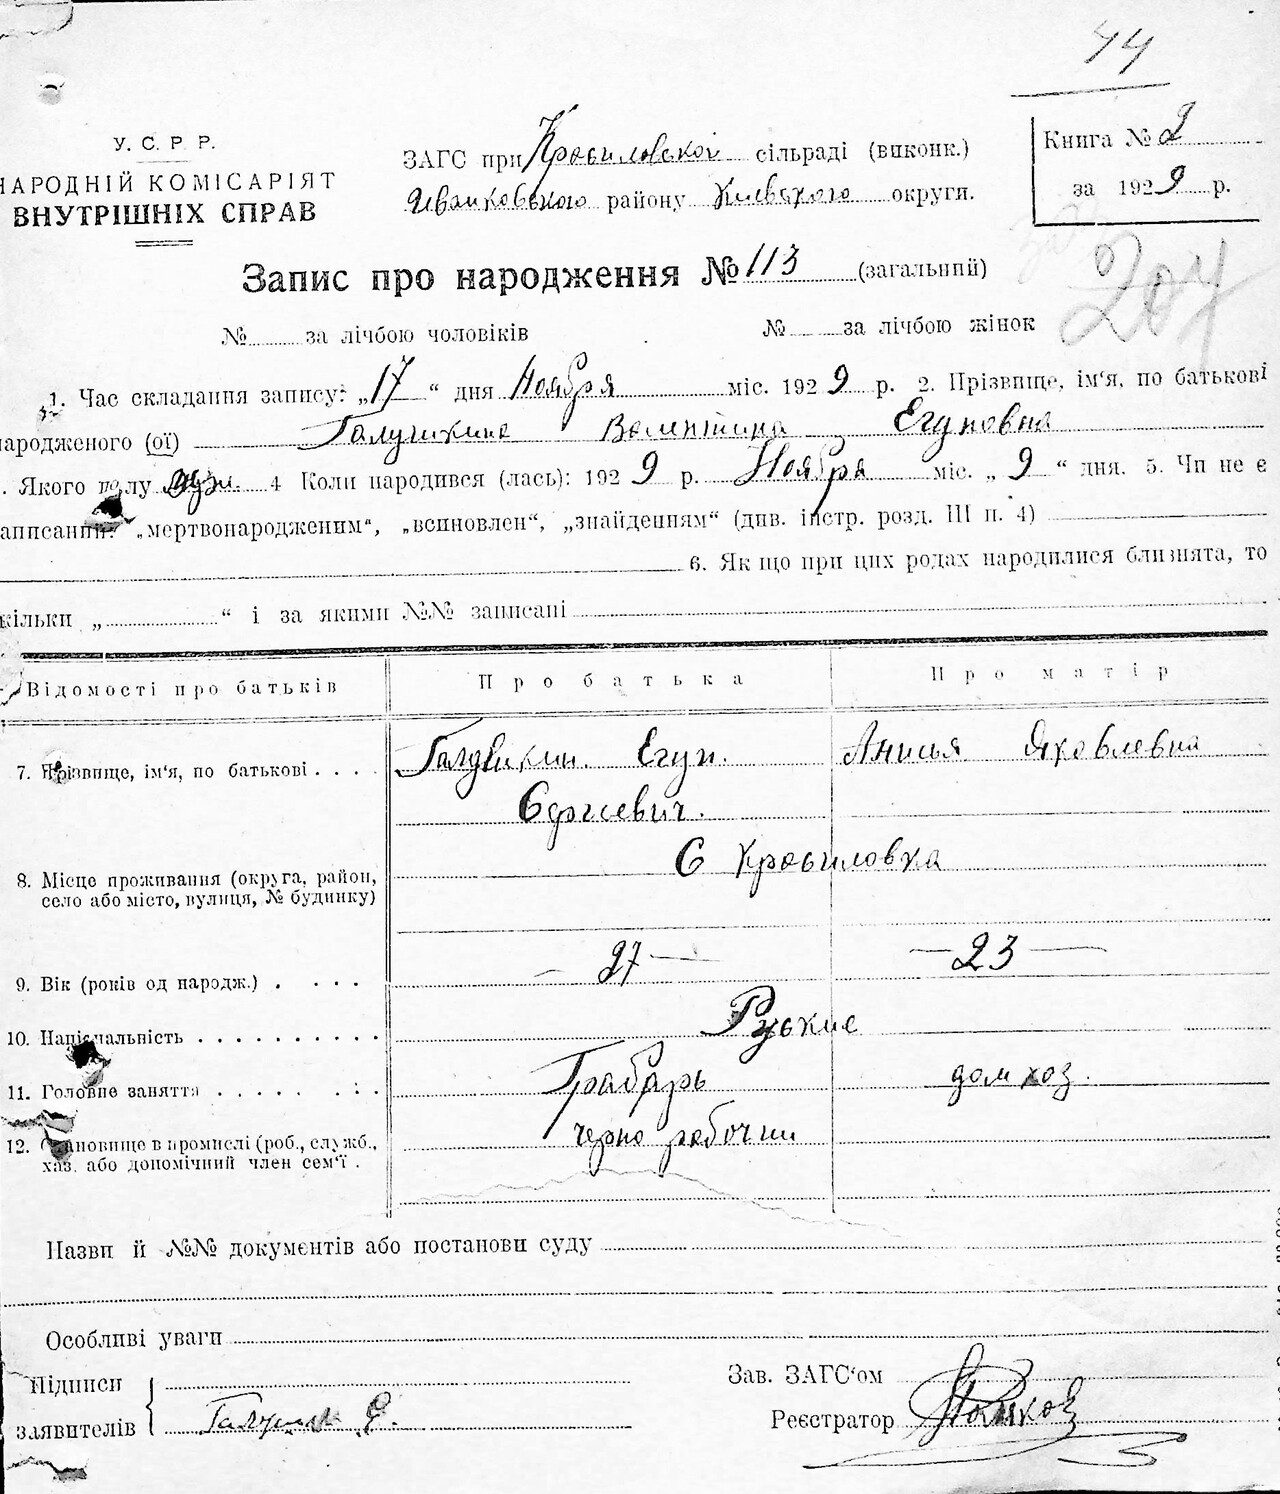 44
У. С. Р. Р.
НАРОДНІЙ КОМІСАРІЯТ
ВНУТРІШНІХ СПРАВ
ЗАГС при Кросиловской сільраді (виконк.)
Иванковського району Киевского округи.
Книга № 2
за 1929 р.
207
Запис про народження № 113 (загальний)
№ за лічбою чоловіків № за лічбою жінок
1. Час складання запису: „17“ дня Ноября міс. 1929 р. 2. Прізвище, ім‘я, по батькові
народженого (ої) Галушкина Валентина Егуповна
. Якого полу 4 Коли народився (лась): 1929 р. Ноября міс. „9“ дня. 5. Чи не є
аписаний: „мертвонародженим“, „всиновлен“, „знайденням“ (див. інстр. розд. III п. 4)
6. Як що при цих родах народилися близнята, то
кільки „ “ і за якими №№ записані
Відомості про батьків Про батька Про матір
7. Прізвище, ім‘я, по батькові . . . . Егуп. Анисья Яковлевна
Сергиевич.
8. Місце проживання (округа, район,
село або місто, вулиця, № будинку)
С Кросиловка
9. Вік (років од народж.) . . . . — 27 — — 23 —
10. Національність . . . . . . . . . . Руские
11. Головне заняття . . . . . . . . Грабарь дом хоз.
12. Становище в промислі (роб., служб.,
хаз. або допомічний член сем‘ї .
черно рабочий
Назви й №№ документів або постанови суду
Особливі уваги
Підписи
заявителів
Зав. ЗАГС‘ом
Реєстратор